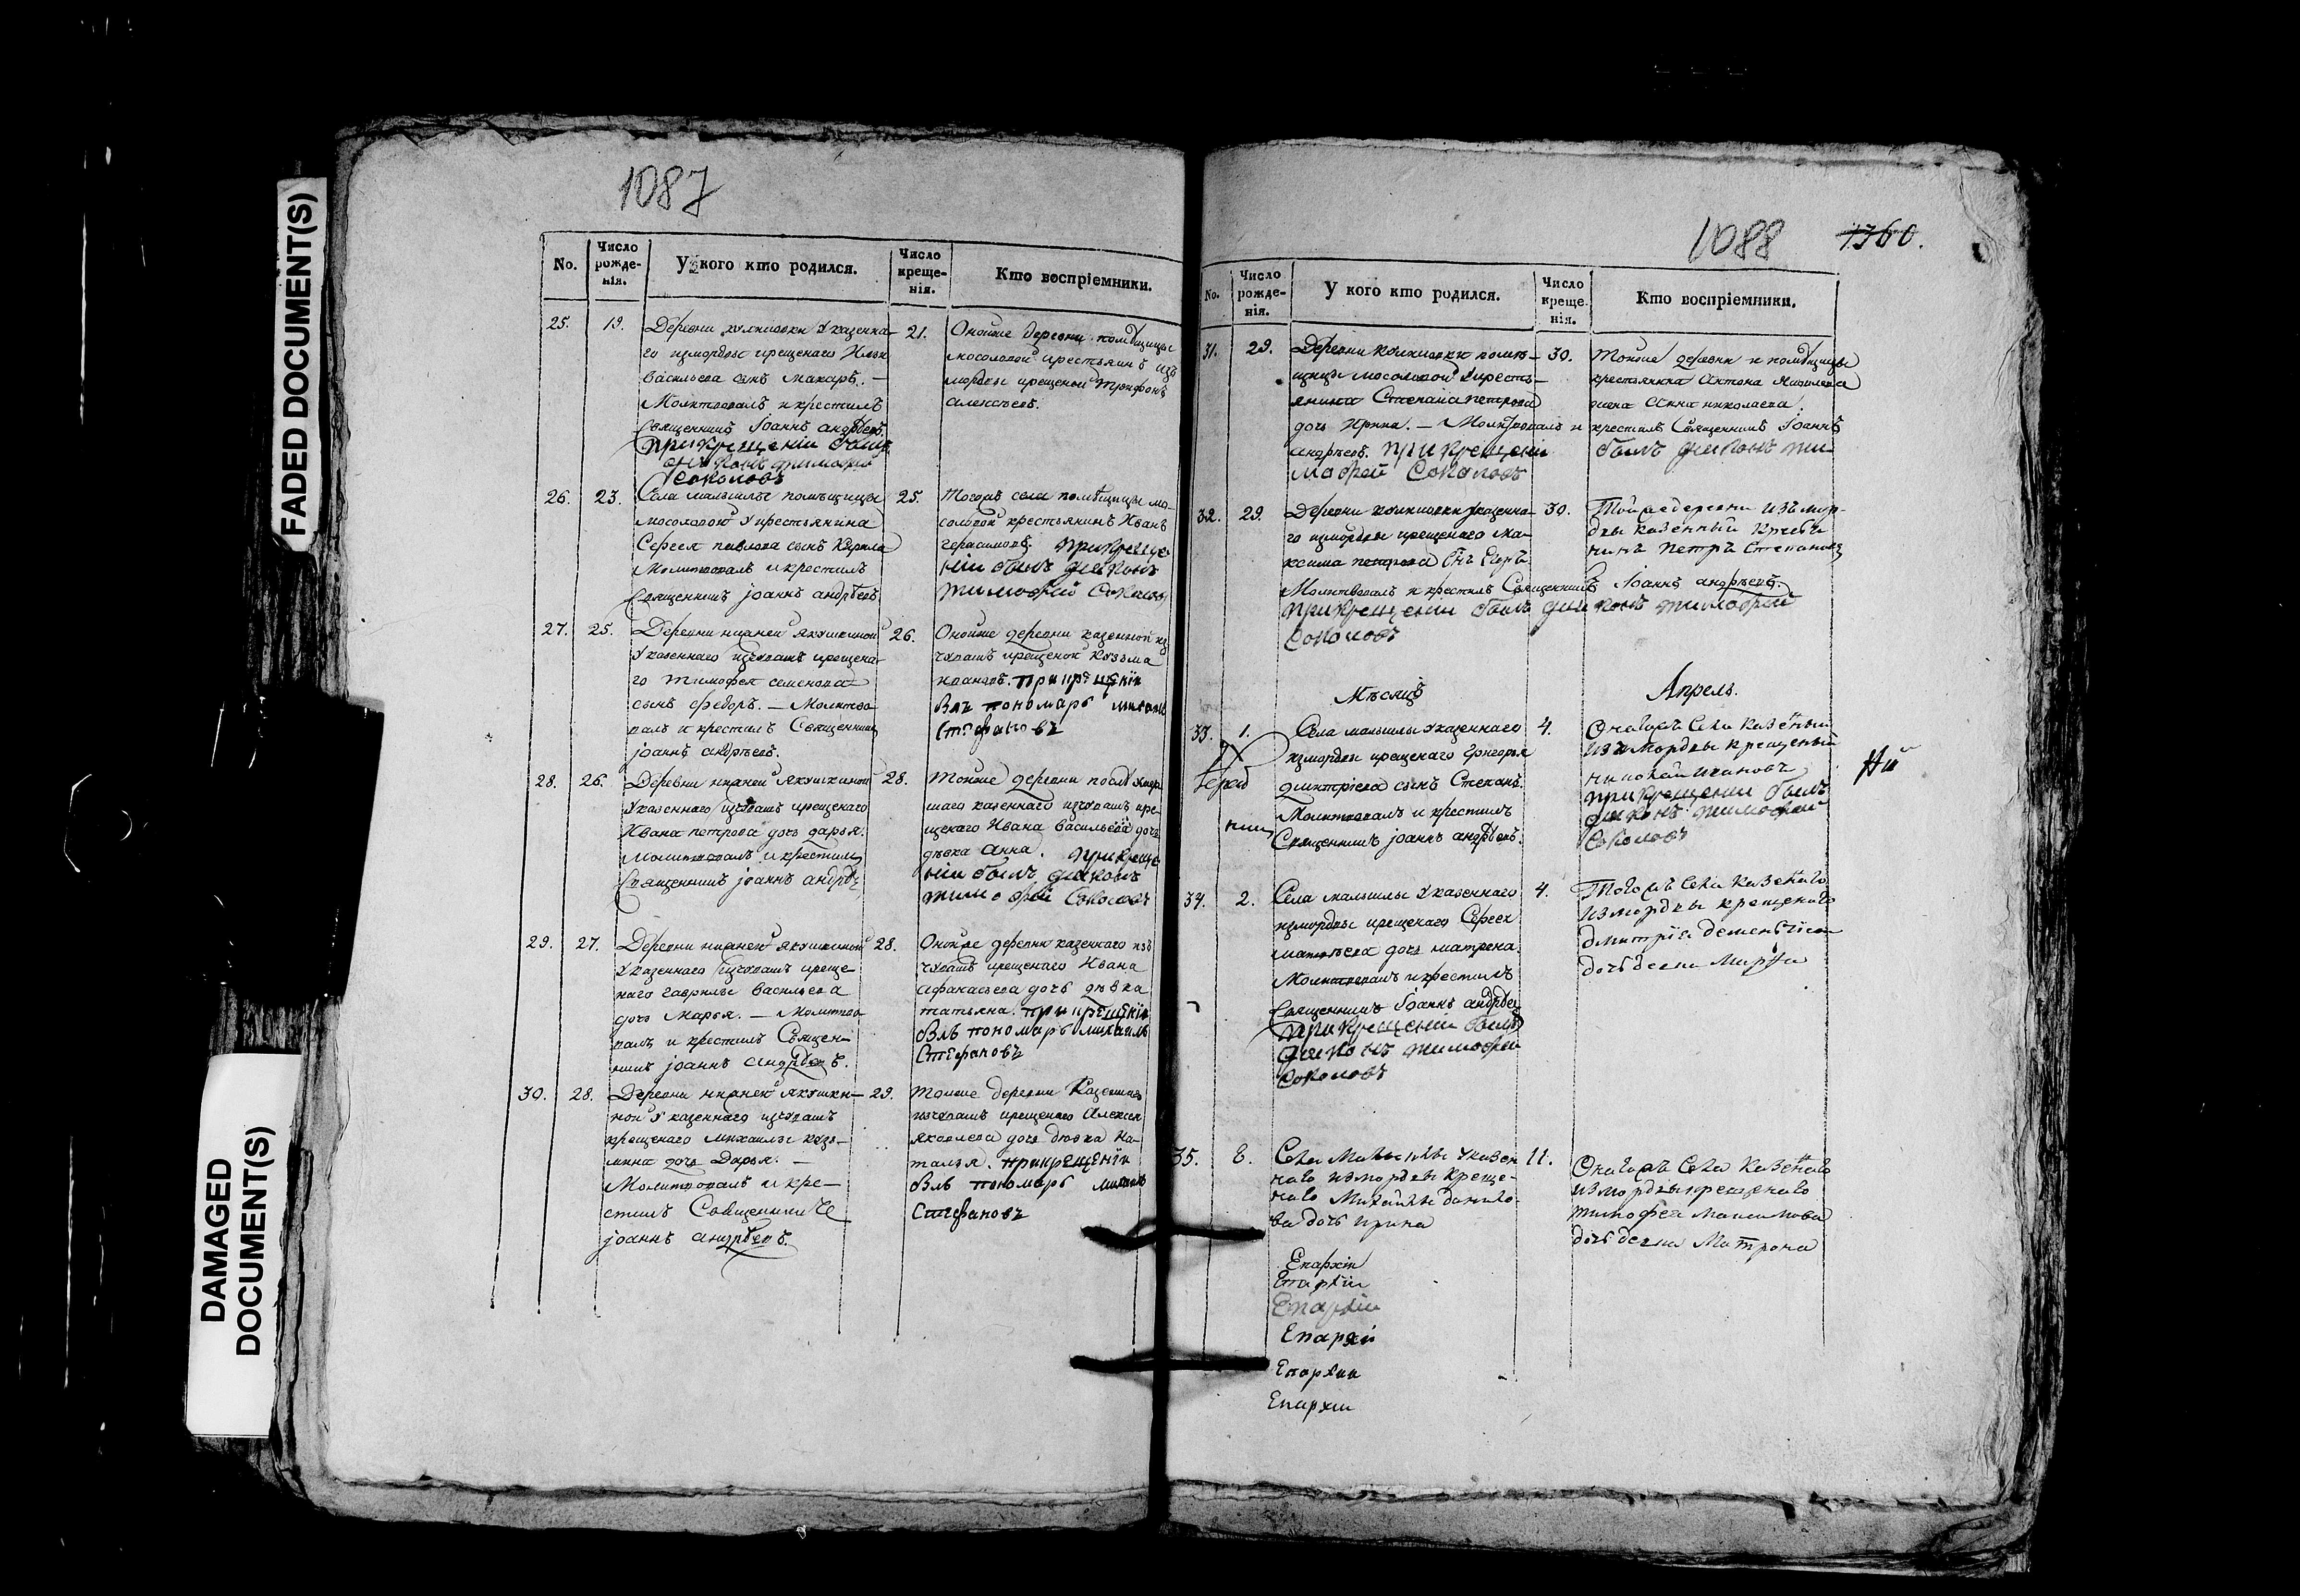 FADED DOCUMENT(S)
DAMAGED
DOCUMENT(S)
1087
No.
Число
рожде-
нія.
У кого кто родился.
Число
креще-
нія.
Кто воспріемники.
25. 19.
Деревни У казенна-
го измордвы крещенаго Ильи
Васильева сынъ Макаръ. —
Молитвовалъ и крестилъ
Священникъ Іоаннъ андрѣевъ.
при крещеніи былъ
дьяконъ тимофей
Соколовъ
21.
Оной же деревни помѣщицы
мосоловой крестьянинъ изъ
мордвы крещеной Трифонъ
алексѣевъ.
26. 23.
Села малышлы помѣщицы
мосоловой У крестьянина
Сергея павлова сынъ Кирила
Молитвовалъ и крестилъ
Священникъ іоаннъ андрѣевъ
25.
Тогожъ села помѣщицы мо-
соловой крестьянинъ Иванъ
герасимовъ. при креще
ніи былъ дьяконъ
тимофей Соколовъ
27. 25.
Деревни нижней якушкиной
У казеннаго изчувашъ крещена-
го тимофея семенова
сынъ федоръ. — Молитво
валъ и крестилъ Священникъ
іоаннъ андрѣевъ.
26.
Оной же деревни казенной из
чувашъ крещеной Козьма
ивановъ. при крещеніи
былъ пономарь михаилъ
Стефановъ
28. 26.
Деревни нижней якушкиной
У казеннаго изчувашъ крещенаго
Ивана петрова дочь дарья.
Молитвовалъ и крестилъ
Священникъ іоаннъ андрѣевъ
28.
Той же деревни послѣ умер
шаго казеннаго изчувашъ кре-
щенаго Ивана васильева дочь
дѣвка анна. при креще
ніи былъ дьяконъ
тимофей Соколовъ
29. 27.
Деревни нижней якушкиной
У казеннаго изчувашъ креще-
наго гаврилы васильева
дочь Марья. — Молитво
валъ и крестилъ Священ-
никъ іоаннъ андрѣевъ.
28.
Оной же деревни казеннаго изъ
чувашъ крещенаго Ивана
афанасьева дочь дѣвка
татьяна. при крещеніи
былъ пономарь михаилъ
Стефановъ
30. 28.
Деревни нижней якушки-
ной У казеннаго изчувашъ
крещенаго михаилы козь-
мина дочь Дарья. —
Молитвовалъ и кре-
стилъ Священникъ
іоаннъ андрѣевъ.
29.
Той же деревни Казеннаго
изчувашъ крещенаго Алексея
яковлева дочь дѣвка На-
талья. при крещеніи
былъ пономарь михаилъ
Стефановъ
1088 1360.
No.
Число
рожде-
нія.
У кого кто родился.
Число
креще-
нія.
Кто воспріемники.
31. 29.
Деревни помѣ-
щицы мосоловой У кресть-
янина Степана петрова
дочь Ирина. — Молитвовалъ и
андрѣевъ. при крещеніи
мофей Соколовъ
30.
Той же деревни и помѣщицы
крестьянина Антона
жена Анна николаева.
крестилъ Священникъ Іоаннъ
былъ дьяконъ ти-
32. 29.
Деревни У казенна-
го измордвы крещенаго ма-
ксима петрова сынъ Егоръ.
Молитвовалъ и крестилъ Священникъ Іоаннъ андрѣевъ.
при крещеніи былъ дьяконъ тимофей
Соколовъ
30.
Той же деревни изъ мор-
двы казенный крестья
нинъ петръ Степановъ
Мѣсяцъ Апрель.
33. 1.
Села малышлы У казеннаго
измордвы крещенаго григорья
дмитріева сынъ Степанъ.
Молитвовалъ и крестилъ
Священникъ іоаннъ андрѣевъ.
4.
Оногожъ Села казенный
изъ мордвы крещеный
николай ивановъ
при крещеніи былъ
дьяконъ тимофей
Соколовъ
34. 2.
Села малышлы У казеннаго
измордвы крещенаго Сергея
матвѣева дочь матрена.
Молитвовалъ и крестилъ
Священникъ Іоаннъ андрѣевъ
при крещеніи былъ
дьяконъ тимофей
Соколовъ
4.
Тогожъ Села казеннаго
измордвы крещенаго
дмитрія дементіева
дочь девка Марфа
35. 8.
Села Малышлы У казен
наго измордвы креще-
наго Михайлы данило-
ва дочь ирина
11.
Оногожъ Села казеннаго
измордвы крещенаго
тимофея Максимова
дочь девка Матрона
Епархіи
Епархіи
Епархіи
Епархіи
Епархіи
Епархіи